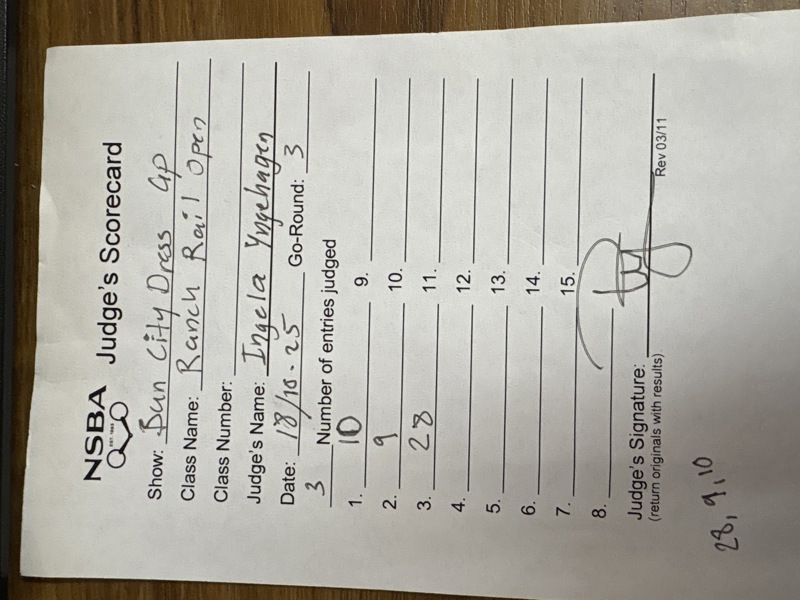 NSBA Judge's Scorecard
EST. 1983
Show: Sun City Dress GP
Class Name: Ranch Rail Open
Class Number:
Judge's Name: Ingela Yngehagen
Date: 18/10-25 Go-Round: 3
3 Number of entries judged
1. 10 9.
2. 9 10.
3. 28 11.
4. 12.
5. 13.
6. 14.
7. 15.
8.
Judge's Signature:
(return originals with results) Rev 03/11
28, 9, 10